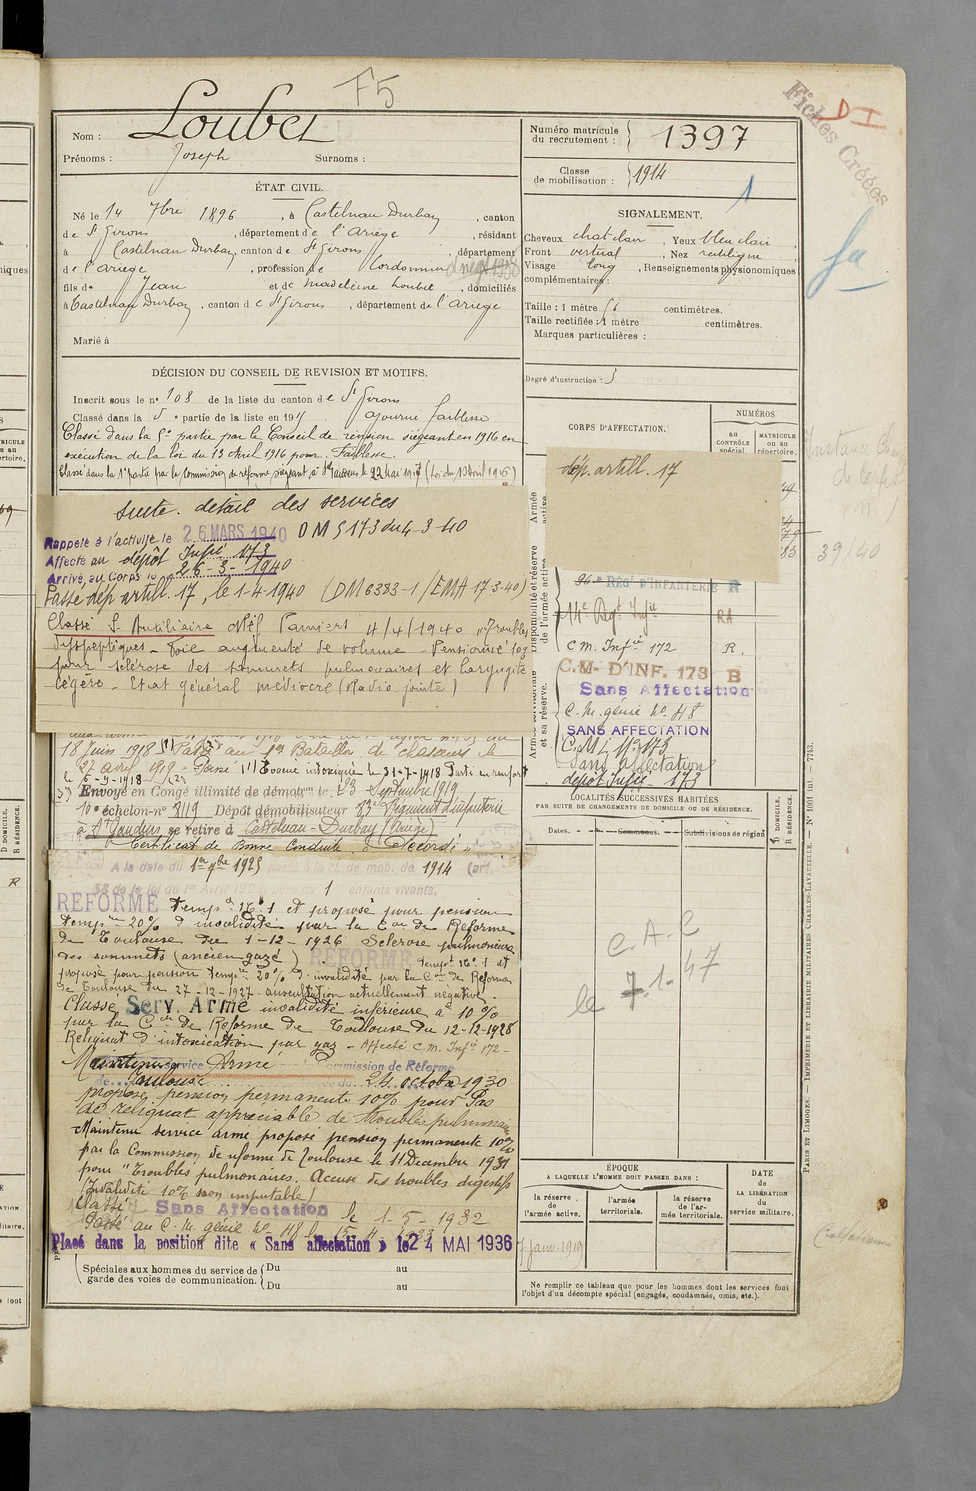 F5
Fiches Créées
D I
Nom : Loubet
Prénoms : Joseph Surnoms :
Numéro matricule du recrutement : 1397
Classe de mobilisation : 1914
1
ÉTAT CIVIL.
Né le 14 7bre 1896, à Castelnau Durban, canton
de St Girons, département de l'Ariège, résidant
à Castelnau Durban, canton de St Girons, département
de l'Ariège, profession de Cordonnier
fils de Jean et de Madeleine Loubet, domiciliés
à Castelnau Durban, canton de St Girons, département de l'Ariège
Marié à
SIGNALEMENT.
Cheveux chat clair, Yeux bleu clair,
Front vertical, Nez rectiligne,
Visage long, Renseignements physionomiques
complémentaires :
Taille : 1 mètre 56 centimètres.
Taille rectifiée : 1 mètre centimètres.
Marques particulières :
Degré d'instruction : 3
DÉCISION DU CONSEIL DE REVISION ET MOTIFS.
Inscrit sous le no 108 de la liste du canton de St Girons
Classé dans la 5e partie de la liste en 191 ajourné faiblesse
Classé dans la 5e partie par le Conseil de révision siégeant en 1916 en
exécution de la loi du 13 Avril 1916 pour. Faiblesse.
Classé dans la 1e partie par la commission de réforme siégeant à St Gaudens le 22 mai 1917 (Loi du 13 avril 1916)
CORPS D'AFFECTATION.
NUMÉROS
AU CONTRÔLE SPÉCIAL.
MATRICULE OU AU RÉPERTOIRE.
dép. artill. 17
39/40
suite. détail des services
Rappelé à l'activité le 26 MARS 1940 DM 5173 du 4-3-40
Affecté au dépôt Infie 173
Arrivé au Corps le 26-3-1940
Passé dép artill. 17, le 1-4-1940 (DM 6383-1/EMA 17 3-40)
Classé S. Auxiliaire Pamiers 4/4/1940 "Troubles
dyspeptiques - Foie augmenté de volume - Pensionné 10%
pour sclérose des sommets pulmonaires et laryngite
légère - Etat général médiocre (Radio jointe)
Disponibilité et réserve de l'armée active.
Armée active.
Armée territoriale et sa réserve.
96e REGt D'INFANTERIE R
14e Regt Infie RA
C.M. Infie 172 R.
C.M. D'INF. 173 B
Sans Affectation
C.M. génie No 48
SANS AFFECTATION
C.M.I. No 173
Sans affectation
dépôt Infie 173
18 Juin 1918. Passé au 1er Bataillon de chasseurs le
27 avril 1919 - Evacué intoxiqué le 31-7-1918 Parti en renfort
le 6-9-1918
Envoyé en Congé illimité de démobon le 23 Septembre 1919
10e échelon no 3119 Dépôt démobilisateur 83e Régiment d'infanterie
à St Gaudens se retire à Castelnau-Durban (Ariège)
Certificat de Bonne Conduite "Accordé"
A la date du 1er 7bre 1925 passé à la cl. de mob. de 1914 (art.
58 de la loi du 1er Avril 1923) père de 1 enfants vivants.
REFORMÉ tempre No 1 et proposé pour pension
tempre 20% d'invalidité par la Con de Réforme
de Toulouse du 1-12-1926 Sclérose pulmonaire
des sommets (ancien gazé). REFORMÉ tempt No 1 et
proposé pour pension tempre 20% d'invalidité par la Con de Réforme
de Toulouse du 27-12-1927. auscultation actuellement négative.
Classé Serv. Armé invalidité inférieure à 10%
par la Con de Réforme de Toulouse du 12-12-1928
Reliquat d'intoxication par gaz - Affecté C.M. Infie 172 -
Maintenu service Armé Commission de Réforme
de Toulouse du 24 octobre 1930
propose pension permanente 10% pour Pas
de reliquat appréciable de troubles pulmonaires
Maintenu service armé proposé pension permanente 10%
par la Commission de réforme de Toulouse le 11 Décembre 1931
pour "Troubles pulmonaires. Accuse des troubles digestifs
(Invalidité 10% non imputable)
Classé Sans Affectation le 1-5-1932
Passé au C.M. génie No 48 le
Placé dans la position dite « Sans affectation » le 24 MAI 1936
Spéciales aux hommes du service de garde des voies de communication.
Du au
Du au
LOCALITÉS SUCCESSIVES HABITÉES
PAR SUITE DE CHANGEMENTS DE DOMICILE OU DE RÉSIDENCE.
Dates.
Communes.
Subdivisions de région
D DOMICILE.
R RÉSIDENCE.
C.A.C
le 7.1.47
ÉPOQUE
A LAQUELLE L'HOMME DOIT PASSER DANS :
la réserve de l'armée active.
l'armée territoriale.
la réserve de l'armée territoriale.
DATE de LA LIBÉRATION du service militaire.
Janv. 1919
Ne remplir ce tableau que pour les hommes dont les services font
l'objet d'un décompte spécial (engagés, condamnés, omis, etc.).
PARIS ET LIMOGES. — IMPRIMERIE ET LIBRAIRIE MILITAIRES CHARLES-LAVAUZELLE. — No 1001 in f — 7743.